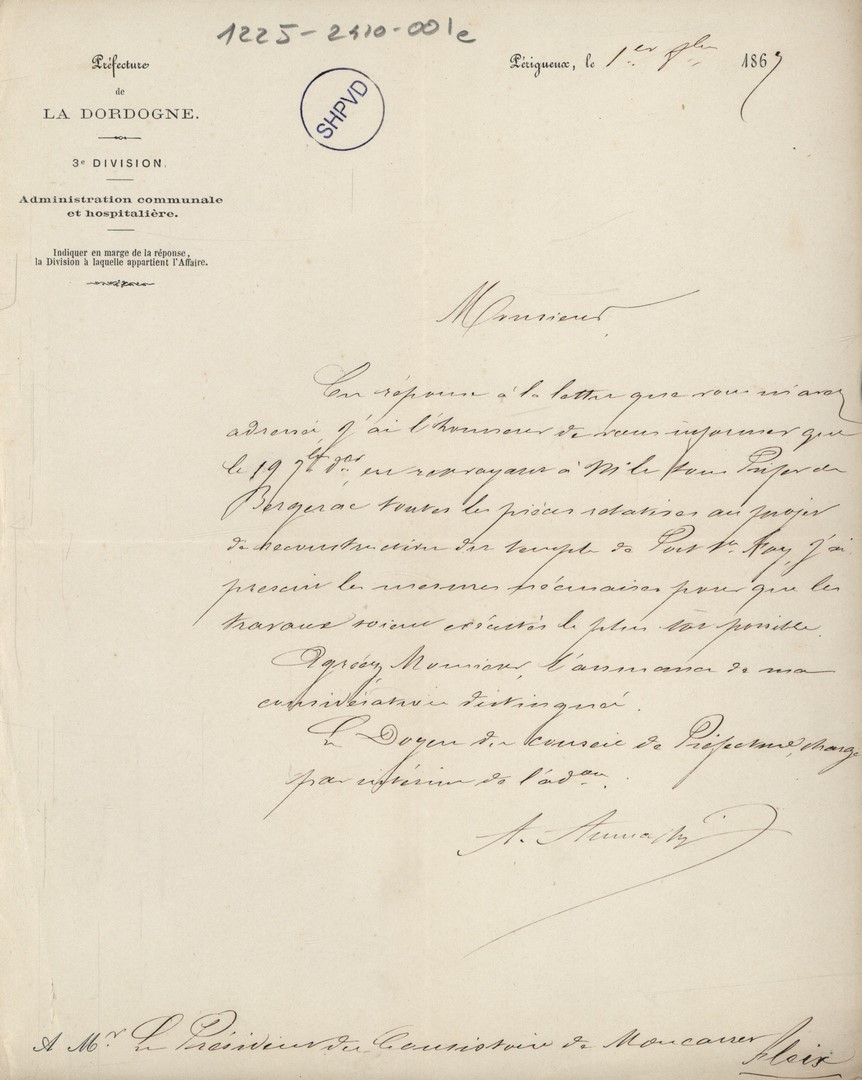 1225-2410-001c
Préfecture
de
LA DORDOGNE.
3e DIVISION.
Administration communale
et hospitalière.
Indiquer en marge de la réponse,
la Division à laquelle appartient l'Affaire.
SHPVD
Périgueux, le 1er 1867
Monsieur
En réponse à la lettre que vous m'avez
adressée j'ai l'honneur de vous informer que
le 19 7bre der, en renvoyant à M. le Sous Préfet de
Bergerac toutes les pièces relatives au projet
de reconstruction du temple de Port Ste Foy, j'ai
prescrit les mesures nécessaires pour que les
travaux soient exécutés le plus tôt possible.
Agréez Monsieur, l'assurance de ma
considération distinguée.
Le Doyen du conseil de Préfecture, chargé
par intérim de l'adon.
A.
A Mr Le Président du Consistoire de Moncaret
Fleix